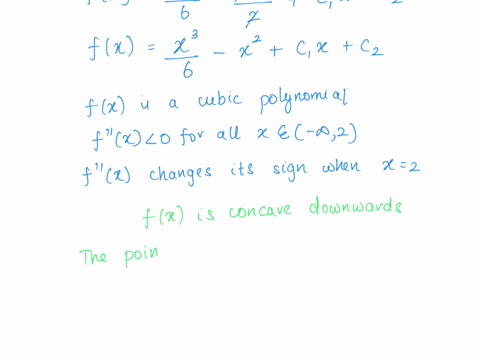 6 2
f(x) = x³/6 - x² + C₁x + C₂
f(x) is a cubic polynomial
f"(x)<0 for all x ϵ(-∞,2)
f"(x) changes its sign when x=2
f(x) is concave downwards
The poin